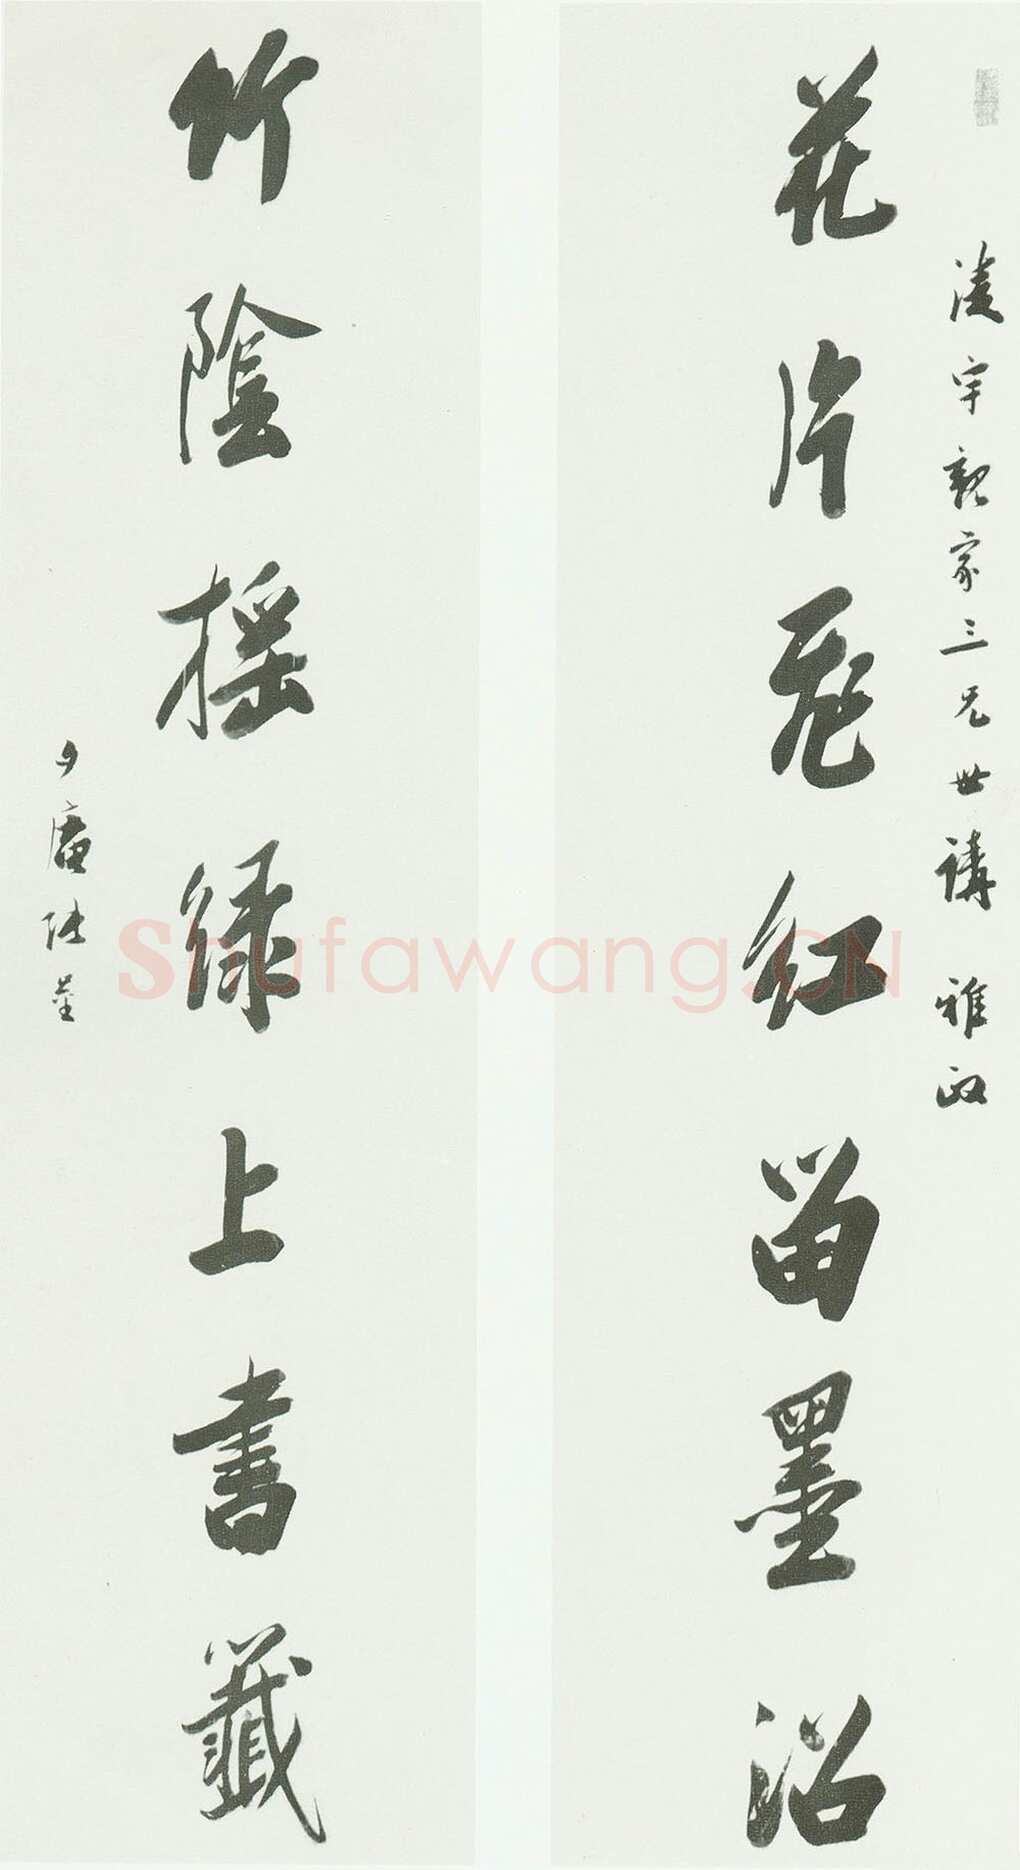 宇親家三兄世講 雅政
花片飛紅留墨沼
竹陰搖綠上書籤
夕庵張崟
Shufawang.CN